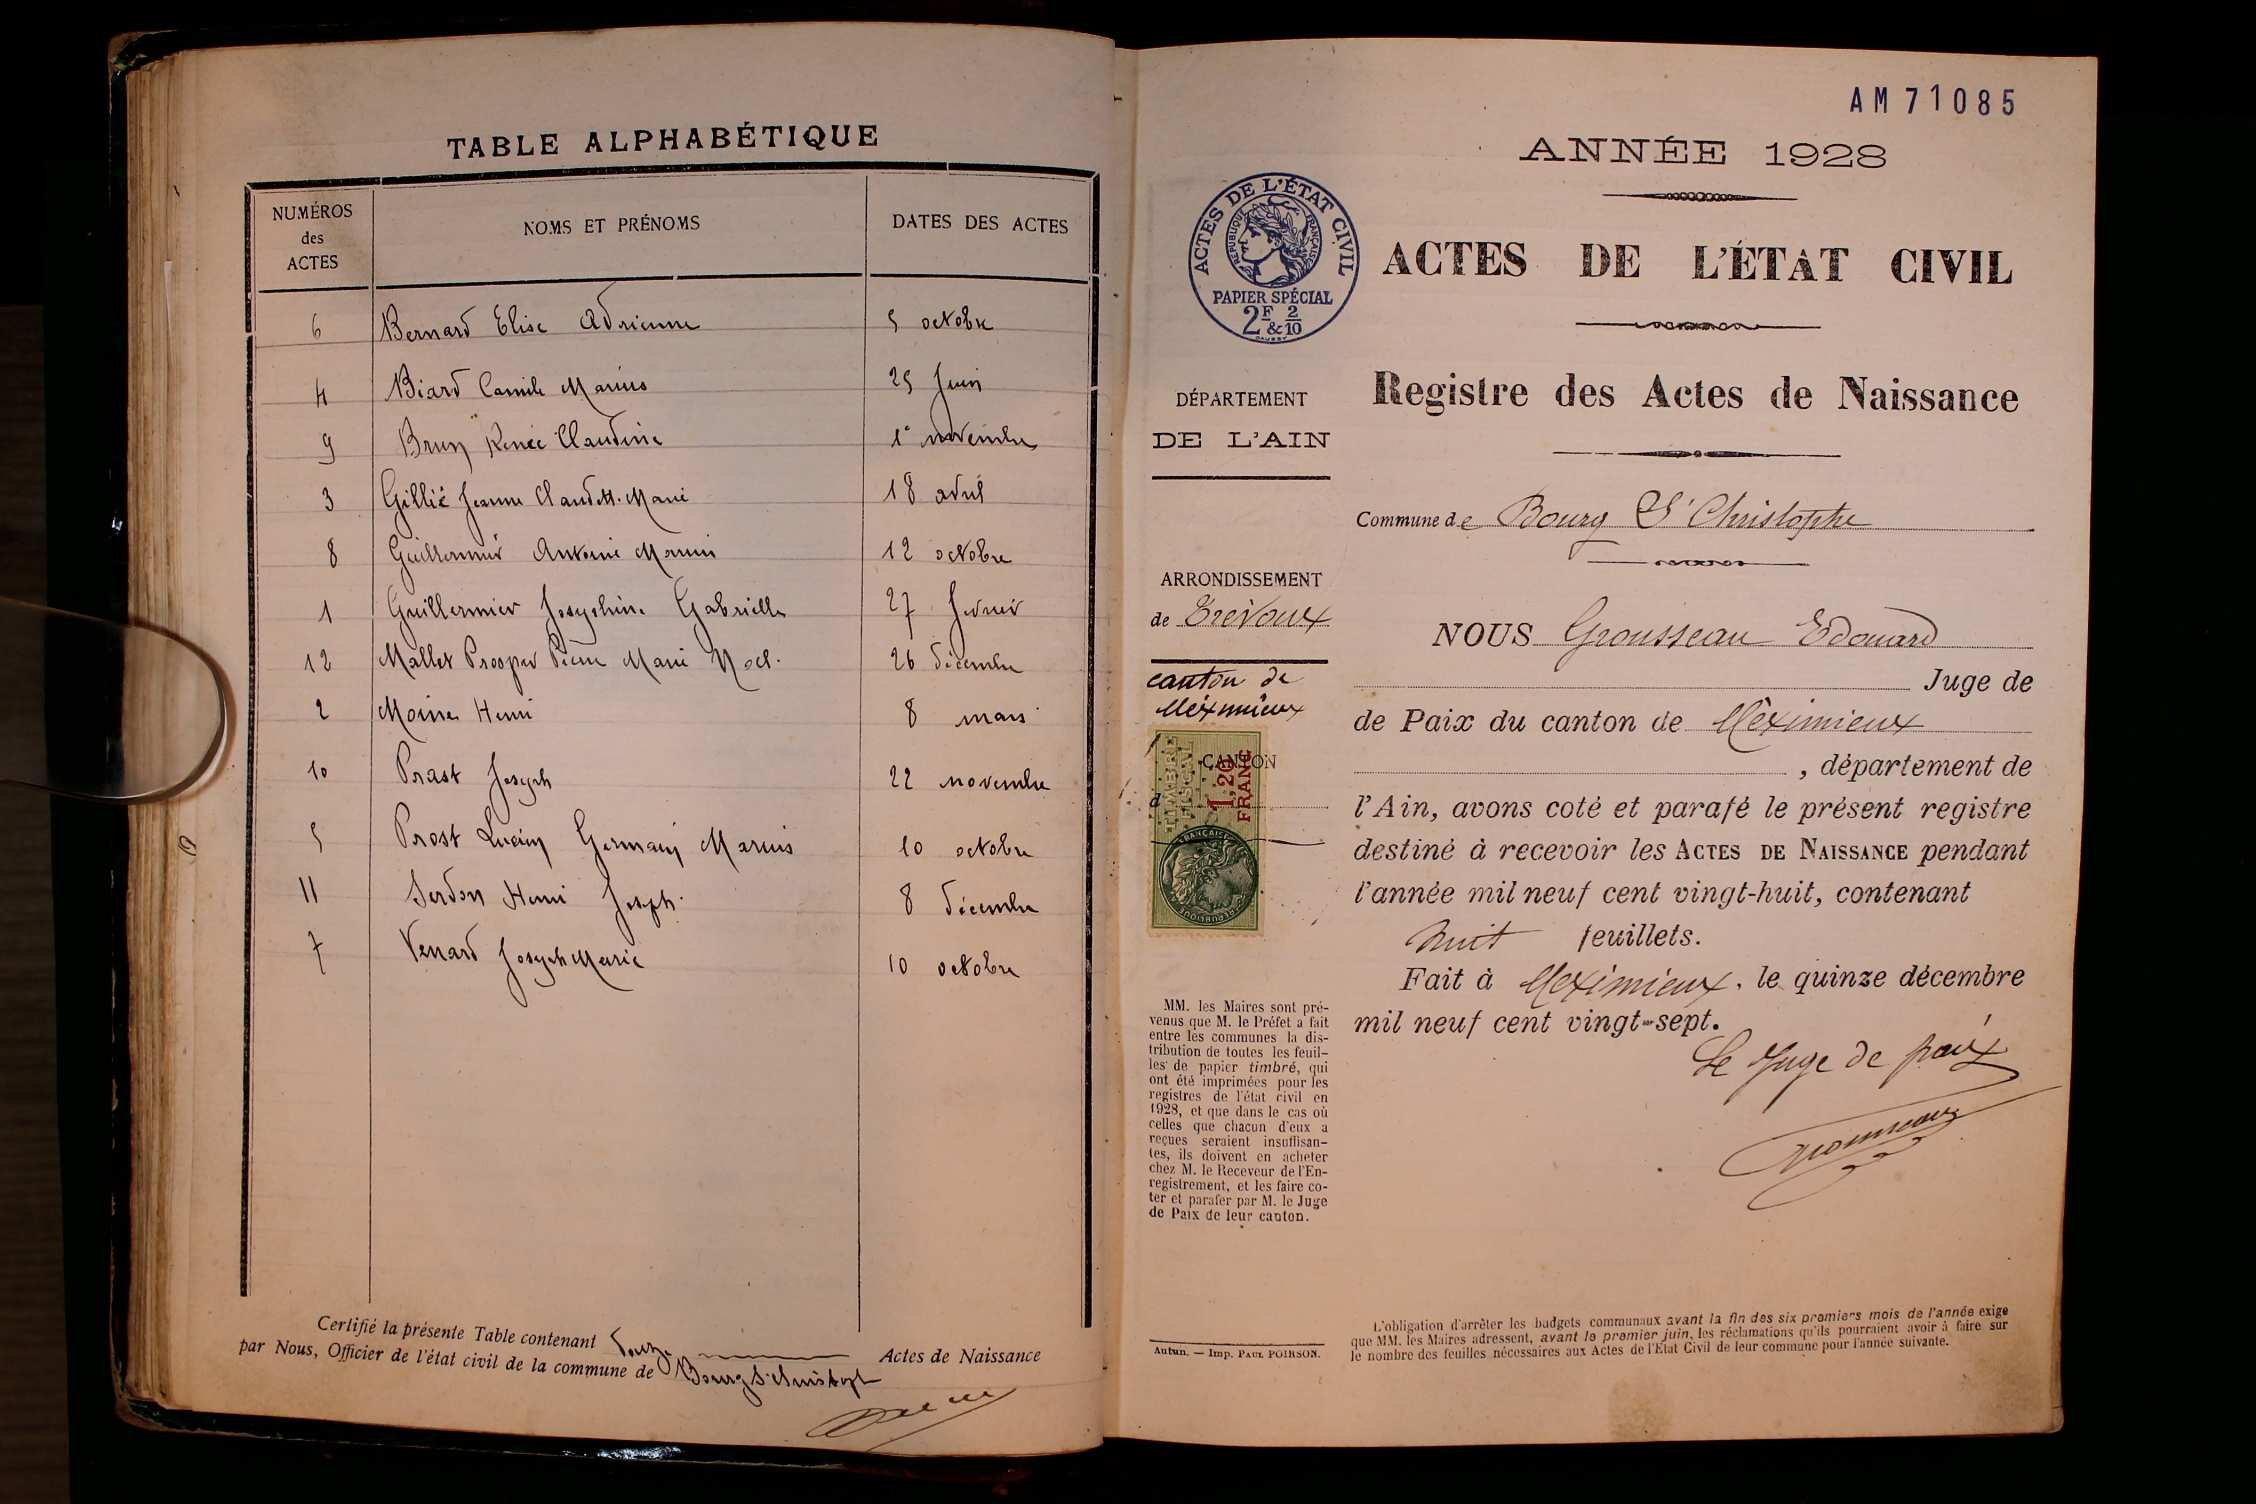 TABLE ALPHABÉTIQUE
NUMÉROS des ACTES NOMS ET PRÉNOMS DATES DES ACTES
6 Bernard Elise Adrienne 5 octobre
4 Biard Camile Marius 25 Juin
9 Brun Renée Claudine 1er novembre
3 Gillié Jeanne Claudette Marie 18 avril
8 Guillermier Antoine Marius 12 octobre
1 Guillermier Josephine Gabrielle 27 fevrier
12 Mallet Prosper Pierre Marie Noel. 26 décembre
2 Moine Henri 8 mars
10 Prast Joseph 22 novembre
5 Prost Lucien Germain Marius 10 octobre
11 Serdon Henri Joseph. 8 décembre
7 Venard Joseph Marie 10 octobre
Certifié la présente Table contenant douze Actes de Naissance
par Nous, Officier de l'état civil de la commune de Bourg St Christophe
AM 71085
ANNÉE 1928
ACTES DE L'ÉTAT CIVIL
RÉPUBLIQUE FRANÇAISE
PAPIER SPÉCIAL
2F & 2/10
ACTES DE L'ÉTAT CIVIL
Registre des Actes de Naissance
DÉPARTEMENT
DE L'AIN
Commune de Bourg St Christophe
ARRONDISSEMENT
de Trévoux
canton de
Méximieux
CANTON
d
TIMBRE FISCAL
1,20 FRANC
RÉPUBLIQUE FRANÇAISE
NOUS Grousseau Edouard
Juge de
de Paix du canton de Méximieux
, département de
l'Ain, avons coté et parafé le présent registre
destiné à recevoir les ACTES DE NAISSANCE pendant
l'année mil neuf cent vingt-huit, contenant
huit feuillets.
Fait à Meximieux, le quinze décembre
mil neuf cent vingt-sept.
Le Juge de paix
Grousseau
MM. les Maires sont pré-
venus que M. le Préfet a fait
entre les communes la dis-
tribution de toutes les feuil-
les de papier timbré, qui
ont été imprimées pour les
registres de l'état civil en
1928, et que dans le cas où
celles que chacun d'eux a
reçues seraient insuffisan-
tes, ils doivent en acheter
chez M. le Receveur de l'En-
registrement, et les faire co-
ter et parafer par M. le Juge
de Paix de leur canton.
Autun. — Imp. PAUL POIRSON.
L'obligation d'arrêter les budgets communaux avant la fin des six premiers mois de l'année exige
que MM. les Maires adressent, avant le premier juin, les réclamations qu'ils pourraient avoir à faire sur
le nombre des feuilles nécessaires aux Actes de l'État Civil de leur commune pour l'année suivante.